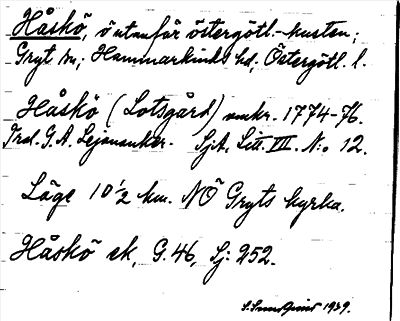 Håskö, ö utanför östergötl.-kusten;
Gryt sn; Hammarkinds hd; Östergötl. l.
Håskö (Lotsgård) omkr. 1774-76.
Trol. G. A. Lejonanker. SjK. Litt. III. N:o 12.
Läge 10 1/2 km. NÖ Gryts kyrka.
Håskö ek, G. 46, Sj: 252.
1939.